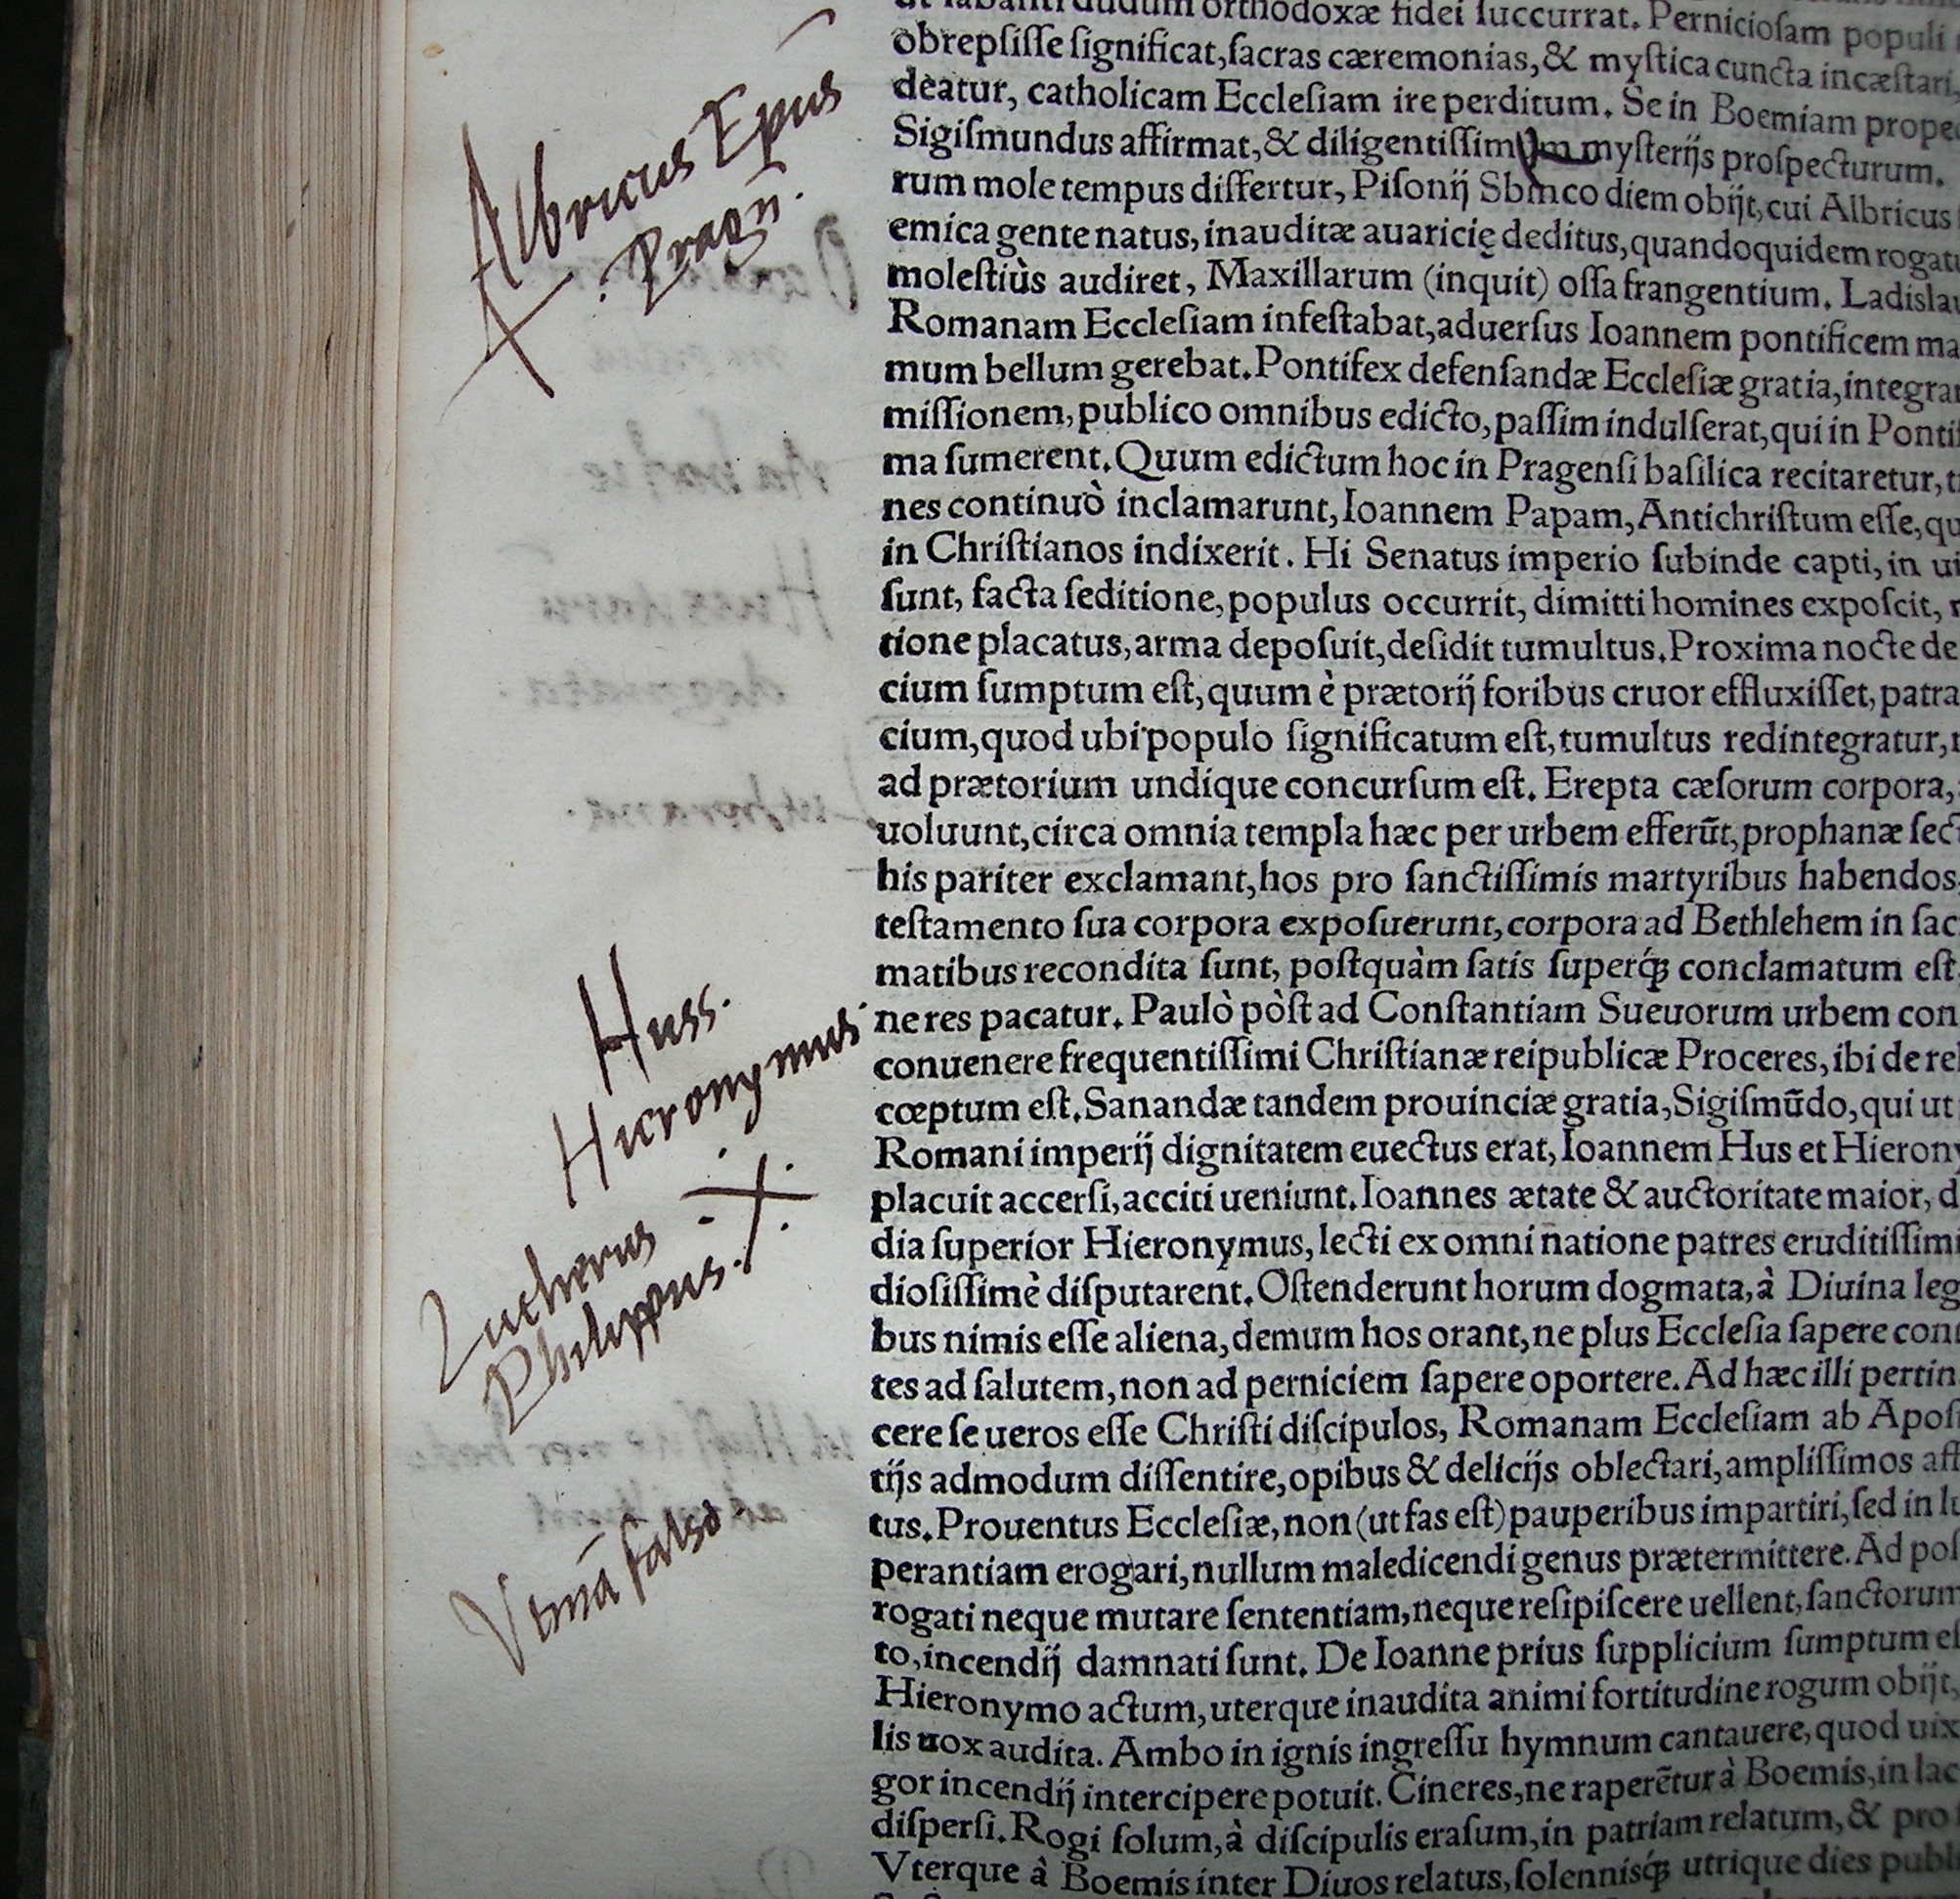 Albricus Epus
Pragn̄.
Huss.
Hieronymus
Lutherus
Philippus.
Vtinā falso
ut labanti dudum orthodoxæ fidei ſuccurrat. Pernicioſam populi
obrepſiſſe ſignificat, ſacras cæremonias, & myſtica cuncta incæſtari,
deatur, catholicam Eccleſiam ire perditum. Se in Boemiam prope
Sigiſmundus affirmat, & diligentiſſim myſterijs proſpecturum.
rum mole tempus differtur, Piſonij Sbinco diem obijt, cui Albricus
emica gente natus, inauditæ auaricię deditus, quandoquidem rogatu
moleſtiùs audiret, Maxillarum (inquit) oſſa frangentium. Ladislau
Romanam Eccleſiam infeſtabat, aduerſus Ioannem pontificem ma
mum bellum gerebat. Pontifex defenſandæ Eccleſiæ gratia, integram
miſſionem, publico omnibus edicto, paſſim indulſerat, qui in Pontif
ma ſumerent. Quum edictum hoc in Pragenſi baſilica recitaretur, t
nes continuò inclamarunt, Ioannem Papam, Antichriſtum eſſe, qu
in Chriſtianos indixerit. Hi Senatus imperio ſubinde capti, in ui
ſunt, facta ſeditione, populus occurrit, dimitti homines expoſcit,
tione placatus, arma depoſuit, deſidit tumultus. Proxima nocte de
cium ſumptum eſt, quum è prætorij foribus cruor effluxiſſet, patra
cium, quod ubi populo ſignificatum eſt, tumultus redintegratur,
ad prætorium undique concurſum eſt. Erepta cæſorum corpora,
uoluunt, circa omnia templa hæc per urbem efferūt, prophanæ ſect
his pariter exclamant, hos pro ſanctiſſimis martyribus habendos
teſtamento ſua corpora expoſuerunt, corpora ad Bethlehem in ſac
matibus recondita ſunt, poſtquàm ſatis ſuperq́ꝫ conclamatum eſt
ne res pacatur. Paulò pòſt ad Conſtantiam Sueuorum urbem con
conuenere frequentiſſimi Chriſtianæ reipublicæ Proceres, ibi de rel
cœptum eſt. Sanandæ tandem prouinciæ gratia, Sigiſmūdo, qui ut
Romani imperij dignitatem euectus erat, Ioannem Hus et Hierony
placuit accerſi, acciti ueniunt. Ioannes ætate & auctoritate maior, d
dia ſuperior Hieronymus, lecti ex omni natione patres eruditiſſimi
dioſiſſimè diſputarent. Oſtenderunt horum dogmata, à Diuina leg
bus nimis eſſe aliena, demum hos orant, ne plus Eccleſia ſapere con
tes ad ſalutem, non ad perniciem ſapere oportere. Ad hæc illi pertin
cere ſe ueros eſſe Chriſti diſcipulos, Romanam Eccleſiam ab Apoſ
tijs admodum diſſentire, opibus & delicijs oblectari, ampliſſimos aff
tus. Prouentus Eccleſiæ, non (ut fas eſt) pauperibus impartiri, ſed in lu
perantiam erogari, nullum maledicendi genus prætermittere. Ad poſ
rogati neque mutare ſententiam, neque reſipiſcere uellent, ſanctorum
to, incendij damnati ſunt. De Ioanne prius ſupplicium ſumptum eſ
Hieronymo actum, uterque inaudita animi fortitudine rogum obijt,
lis uox audita. Ambo in ignis ingreſſu hymnum cantauere, quod uix
gor incendij intercipere potuit. Cineres, ne raperẽtur à Boemis, in lac
diſperſi. Rogi ſolum, à diſcipulis eraſum, in patriam relatum, & pro
Vterque à Boemis inter Diuos relatus, ſolennisq́ꝫ utrique dies publ